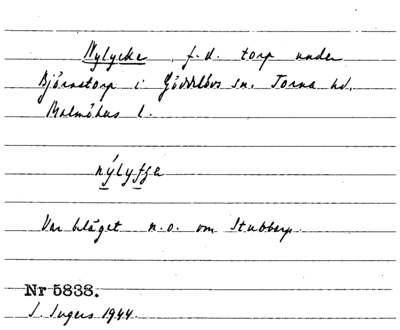 Nylycke, f.d. torp under
Björnstorp i Gödelövs sn. Torna hd.
Malmöhus l.
nýlyfga
Var beläget n.o. om Stubbarp.
Nr 5838.
I. Ingers 1944.